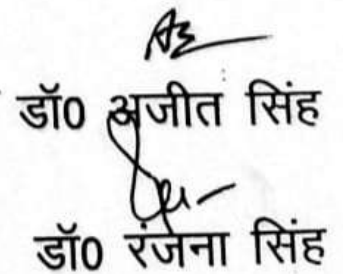 डॉ0 अजीत सिंह
डॉ0 रंजना सिंह